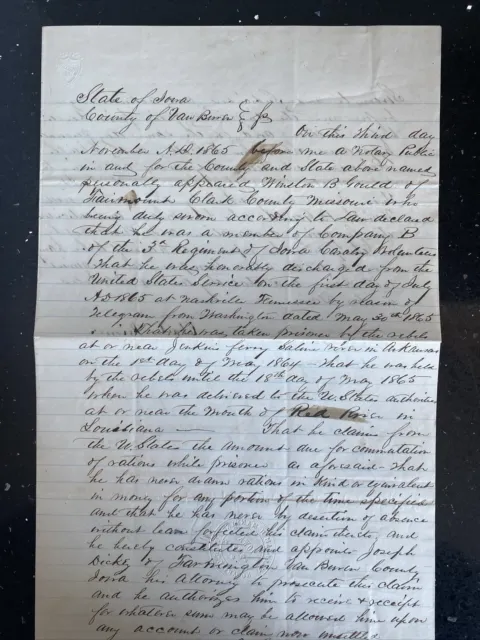 State of Iowa
County of Van Buren } ss
On this third day
November A.D. 1865 before me a Notary Public
in and for the County and State above named
personally appeared Winston B Gould of
Fairmount Clark County Missouri who
being duly sworn according to law declared
that he was a member of Company B
of the 3rd Regiment of Iowa Cavalry Volunteers
That he was honorably discharged from the
United States Service on the first day of July
AD 1865 at Nashville Tennessee by reason of
Telegram from Washington dated May 30th 1865
That he was taken prisoner by the rebels
at or near Jenkins ferry Saline river in Arkansas
on the 1st day of May 1864 That he was held
by the rebels until the 18th day of May 1865
When he was delivered to the U. States authorities
at or near the Mouth of Red River in
Louisiana — That he claims from
the U. States the amount due for commutation
of rations while prisoner as aforesaid That
he has never drawn rations in Kind or equivalent
in money for any portion of the time specified
and that he has never by desertion or absence
without leave forfeited his claim thereto, and
he hereby constitutes and appoints Joseph
of Farmington Van Buren County
Iowa his Attorney to prosecute this claim
and he authorizes him to receive & receipt
for whatever sum may be allowed him upon
any account or claim now